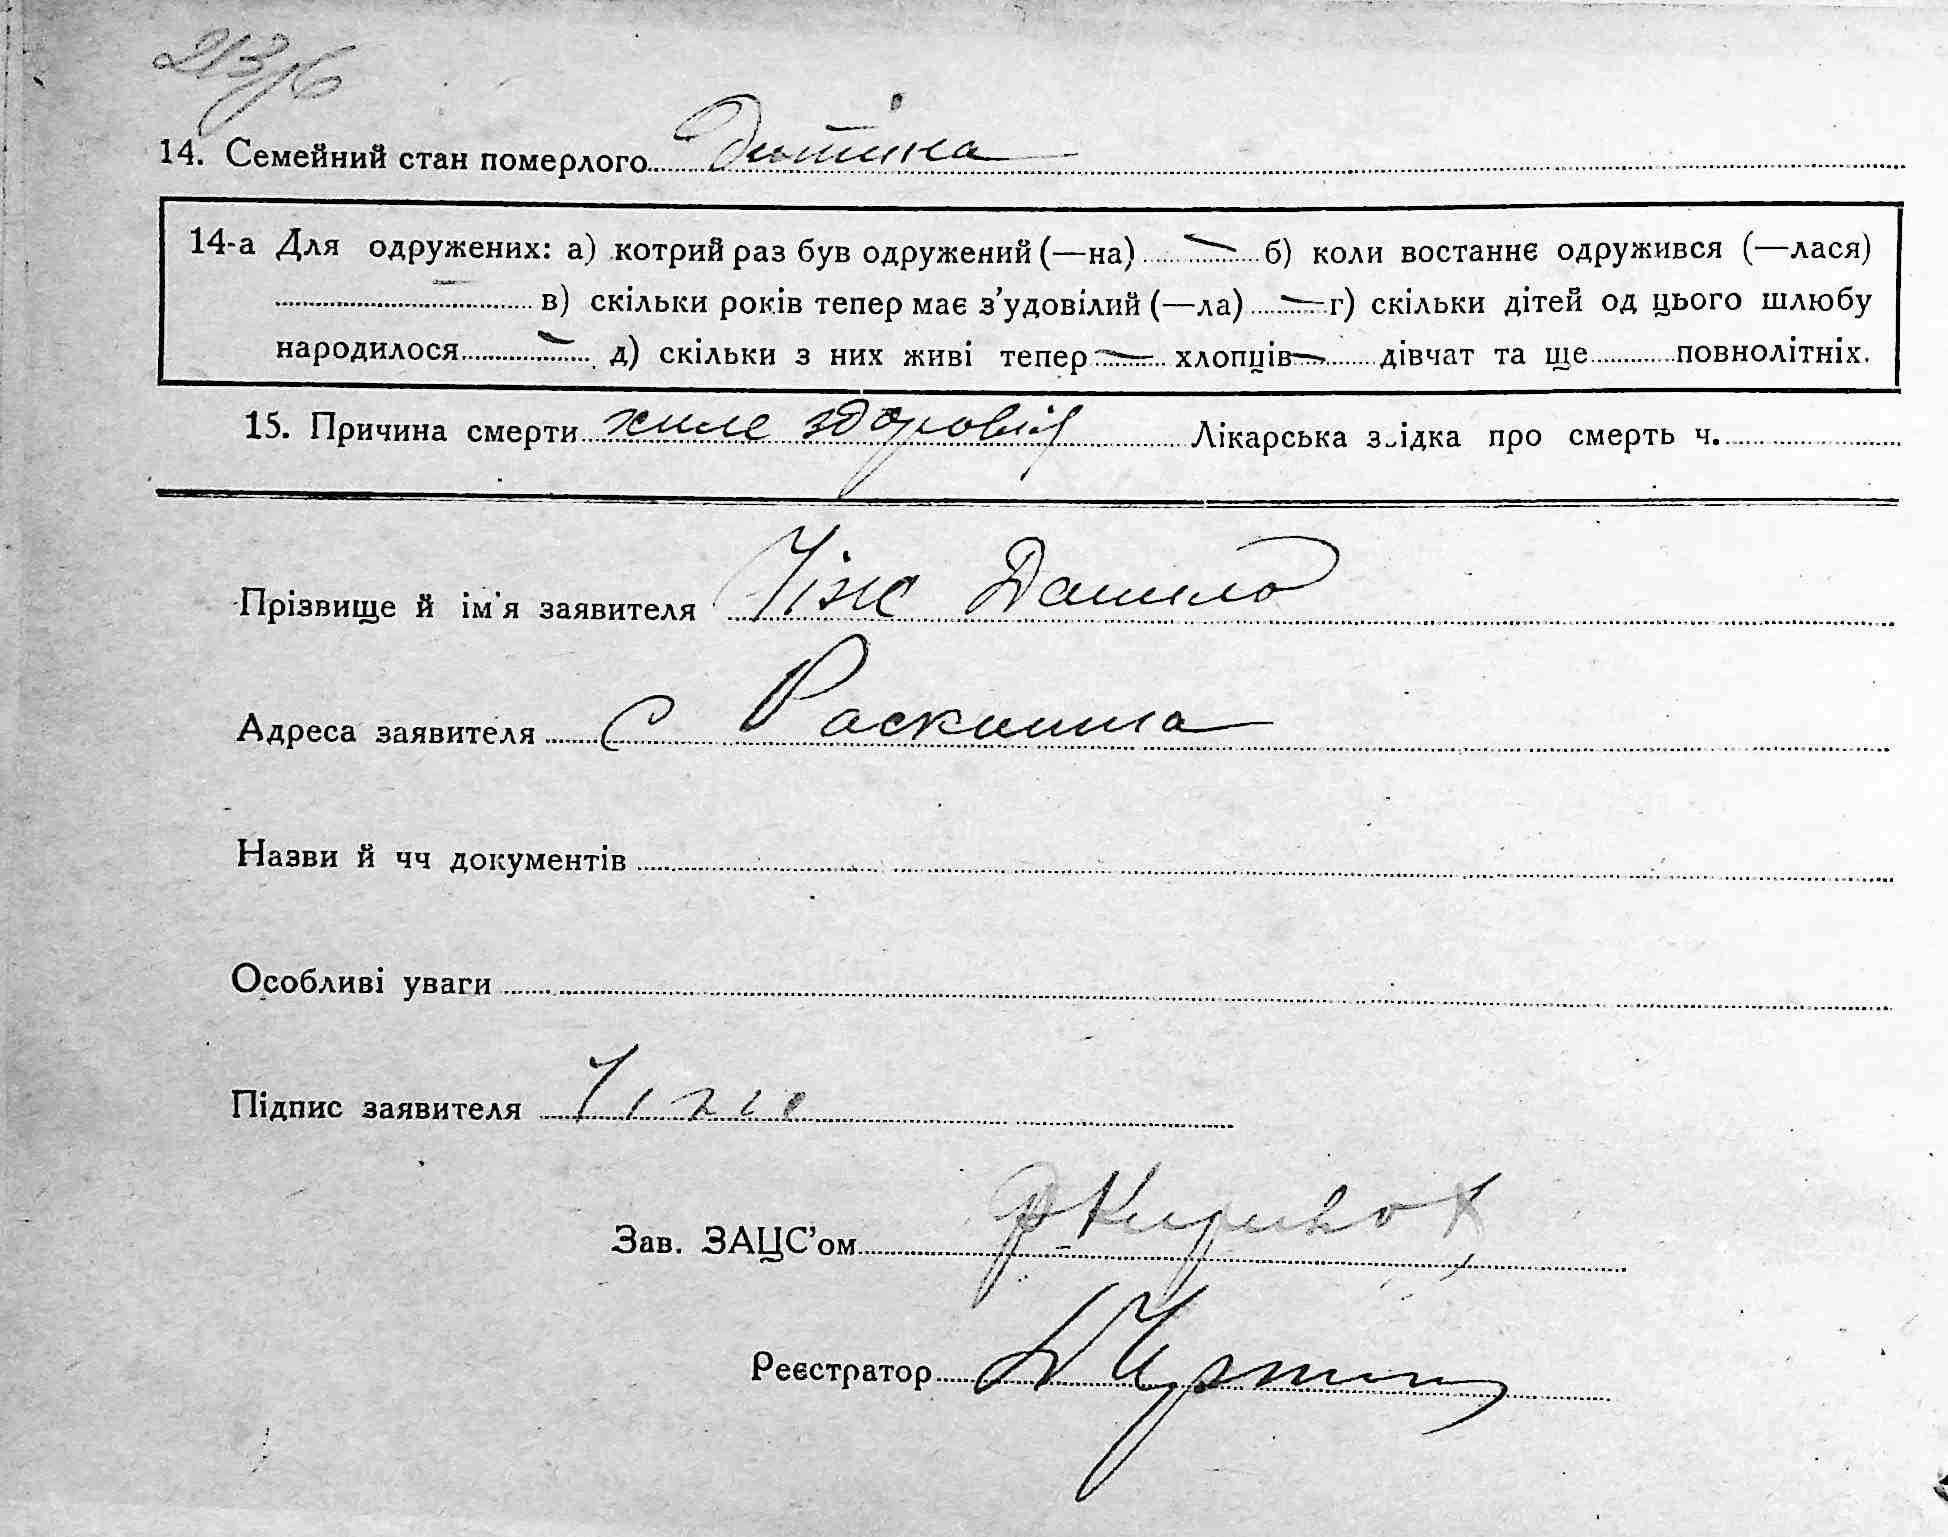 213/6
14. Семейний стан померлого Дитина
14-а Для одружених: а) котрий раз був одружений (—на) — б) коли востаннє одружився (—лася)
— в) скільки років тепер має з'удовілий (—ла) — г) скільки дітей од цього шлюбу
народилося — д) скільки з них живі тепер — хлопців — дівчат та ще повнолітніх.
15. Причина смерти хиле здоровія Лікарська звідка про смерть ч.
Прізвище й ім'я заявителя Чіж Данило
Адреса заявителя с
Назви й чч документів
Особливі уваги
Підпис заявителя Чіж
Зав. ЗАЦС'ом
Реєстратор